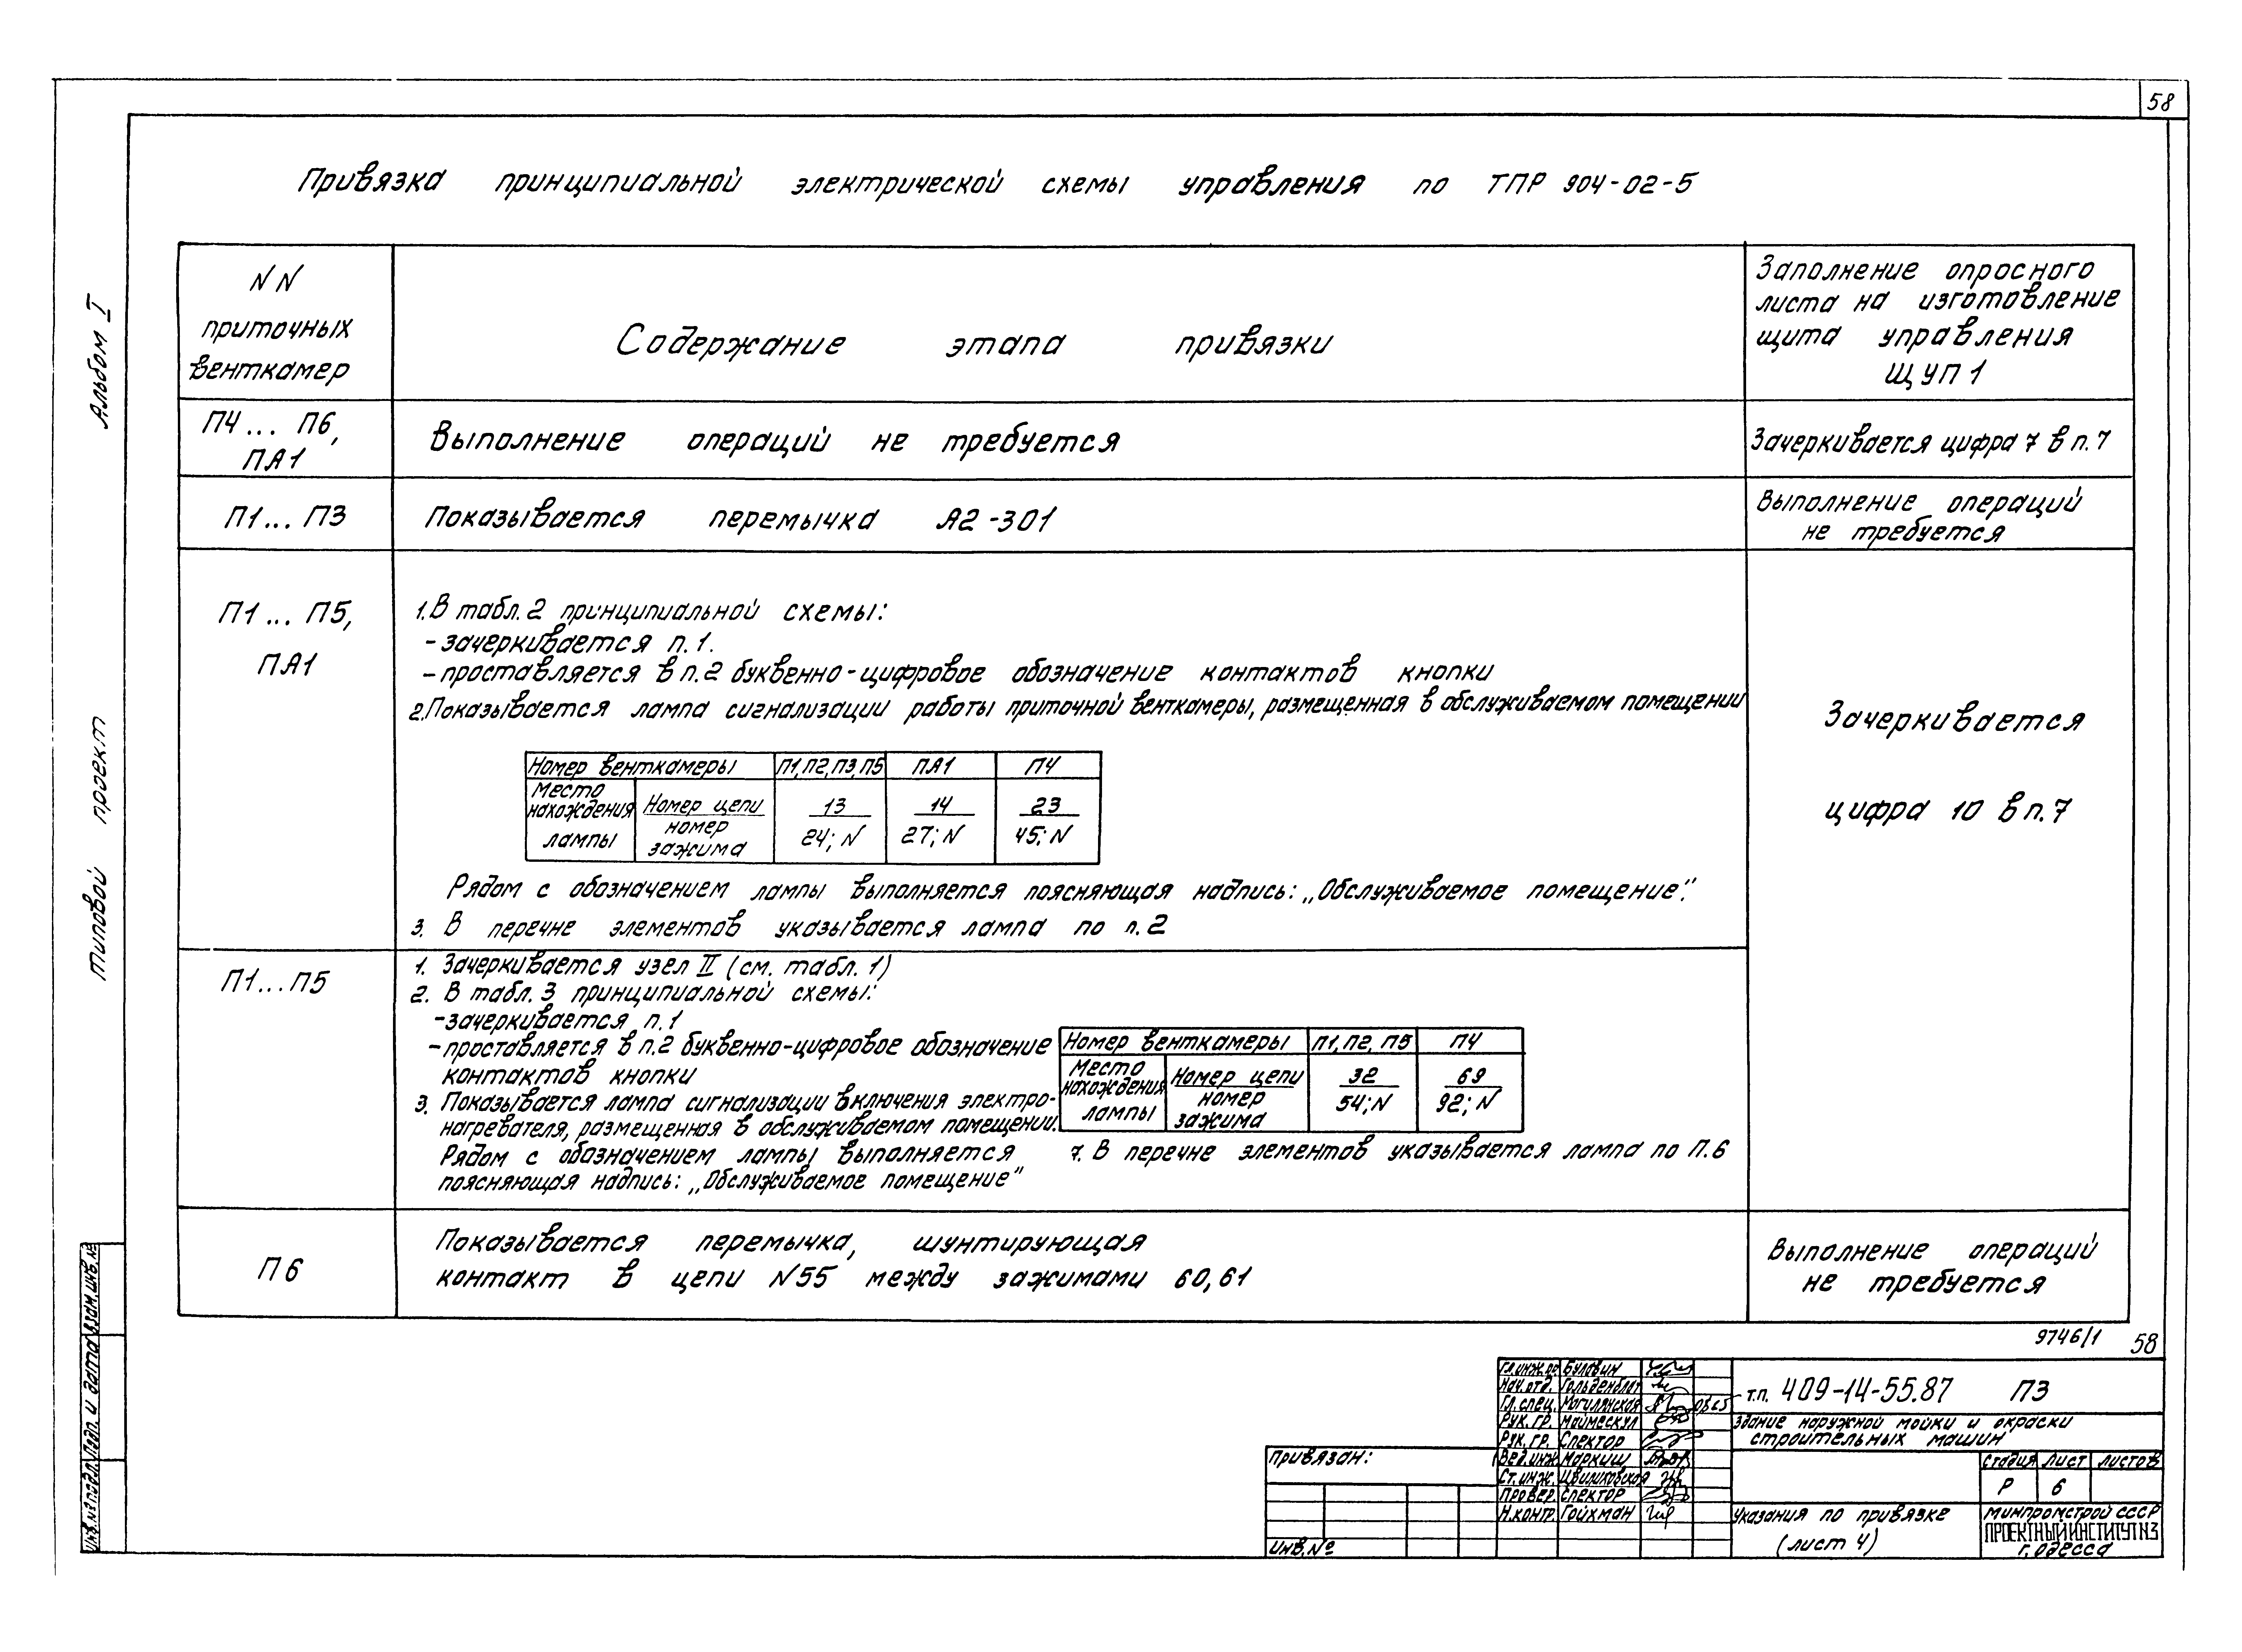 58
Привязка принципиальной электрической схемы управления по ТПР 904-02-5
NN
приточных
венткамер
Содержание этапа привязки
Заполнение опросного
листа на изготовление
щита управления
ЩУП1
П4... П6,
ПА1
Выполнение операций не требуется
Зачеркивается цифра 7 в п.7
П1... П3
Показывается перемычка А2-301
Выполнение операций
не требуется
П1... П5,
ПА1
1. В табл. 2 принципиальной схемы:
- зачеркивается п.1.
- проставляется в п.2 буквенно-цифровое обозначение контактов кнопки
2. Показывается лампа сигнализации работы приточной венткамеры, размещенная в обслуживаемом помещении
Номер венткамеры П1,П2,П3,П5 ПА1 П4
Место
нахождения
лампы
Номер цепи
номер
зажима
13
24; N
14
27; N
23
45; N
Рядом с обозначением лампы выполняется поясняющая надпись: „Обслуживаемое помещение".
3. В перечне элементов указывается лампа по п.2
Зачеркивается
цифра 10 в п.7
П1...П5
1. Зачеркивается узел II (см. табл. 1)
2. В табл. 3 принципиальной схемы:
- зачеркивается п.1
- проставляется в п.2 буквенно-цифровое обозначение
контактов кнопки
3. Показывается лампа сигнализации включения электро-
нагревателя, размещенная в обслуживаемом помещении.
Рядом с обозначением лампы выполняется
поясняющая надпись: „Обслуживаемое помещение"
Номер венткамеры П1, П2, П5 П4
Место
нахождения
лампы
Номер цепи
номер
зажима
32
54; N
69
92; N
7. В перечне элементов указывается лампа по П.6
П6
Показывается перемычка, шунтирующая
контакт в цепи N55 между зажимами 60,61
Выполнение операций
не требуется
9746/1 58
Альбом I
типовой проект
Инв.№ подл. Подп. и дата Взам.инв.№
Привязан:
Инв.№
Гл.инж.пр. Булавин
Нач.отд. Гольденблат
Гл.спец. Могилянская
Рук.гр. Маймескул
Рук.гр. Спектор
Вед.инж. Маркиш
Ст.инж.
Провер. Спектор
Н.контр. Гойхман
т.п. 409-14-55.87 ПЗ
Здание наружной мойки и окраски
строительных машин
стадия лист листов
Р 6
Указания по привязке
(лист 4)
Минпромстрой СССР
ПРОЕКТНЫЙ ИНСТИТУТ N3
г. Одесса